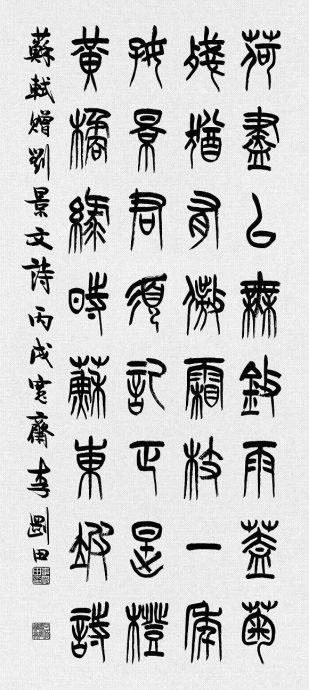 荷盡已無擎雨蓋菊
殘猶有傲霜枝一年
好景君須記正是橙
黃橘綠時蘇東坡詩
蘇軾贈劉景文詩丙戌寬齋李剛田